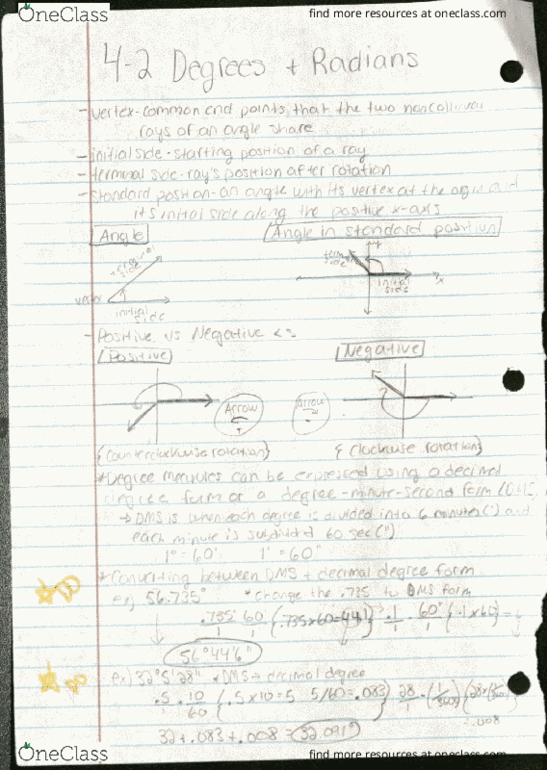 OneClass
find more resources at oneclass.com
4-2 Degrees + Radians
- vertex-common end points, that the two noncollinear
rays of an angle share
- initial side - starting position of a ray
- terminal side - ray's position after rotation
- standard position - an angle with its vertex at the origin and
its initial side along the positive x-axis
Angle
Angle in standard position
terminal side
vertex
initial side
terminal side
y
initial side
x
- Positive vs Negative <s
Positive
Negative
Arrow
arrow
+
-
{counterclockwise rotation}
{clockwise rotation}
*Degree measures can be expressed using a decimal
degree form or a degree-minute-second form (DMS)
→ DMS is when each degree is divided into 6 minutes (') and
each minute is subdivided 60 sec (")
1° = 60' 1' = 60"
*Converting between DMS + decimal degree form
ex) 56.735° *change the .735 to DMS form
.735° 60 (.735x60=44.1) .1 60" (.1x60)=
1 1 1 1
56°44'6"
ex) 32°5'28" *DMS → decimal degree
.5 · 10 (.5x10=5 5/60=.083) 28
60 1
=.008
32+.083+.008=32.091°
OneClass
find more resources at oneclass.com